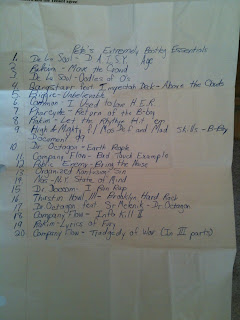 Extremely Essentials
1. De La Soul - D.A.I.S.Y. Age
2. Rakim - Move the Crowd
3. De La Soul - Oodles of O's
4. Gangstarr feat Inspectah Deck - Above the Clouds
5. Biggie - Unbelievable
6. Common - I Used to Love H.E.R.
7. Pharcyde - Return of the B-Boy
8. Rakim - Let the Rhythm Hit 'em
9. High & Mighty f/ Mos Def and Mad Skillz - B-Boy
Document 99
10. Dr. Octagon - Earth People
11. Company Flow - Bad Touch Example
12. Public Enemy - Bring the Noise
13. Organized Konfusion
14. Nas - N.Y. State of Mind
15. J. I Run Rap
16. Thurstin Howl III - Brooklyn Hard Rock
17. Dr. Octagon feat Sir Menelik -
18. Company Flow - Info Kill II
19. Rakim - Lyrics of Fury
20. Company Flow - Tragedy of War (In III parts)